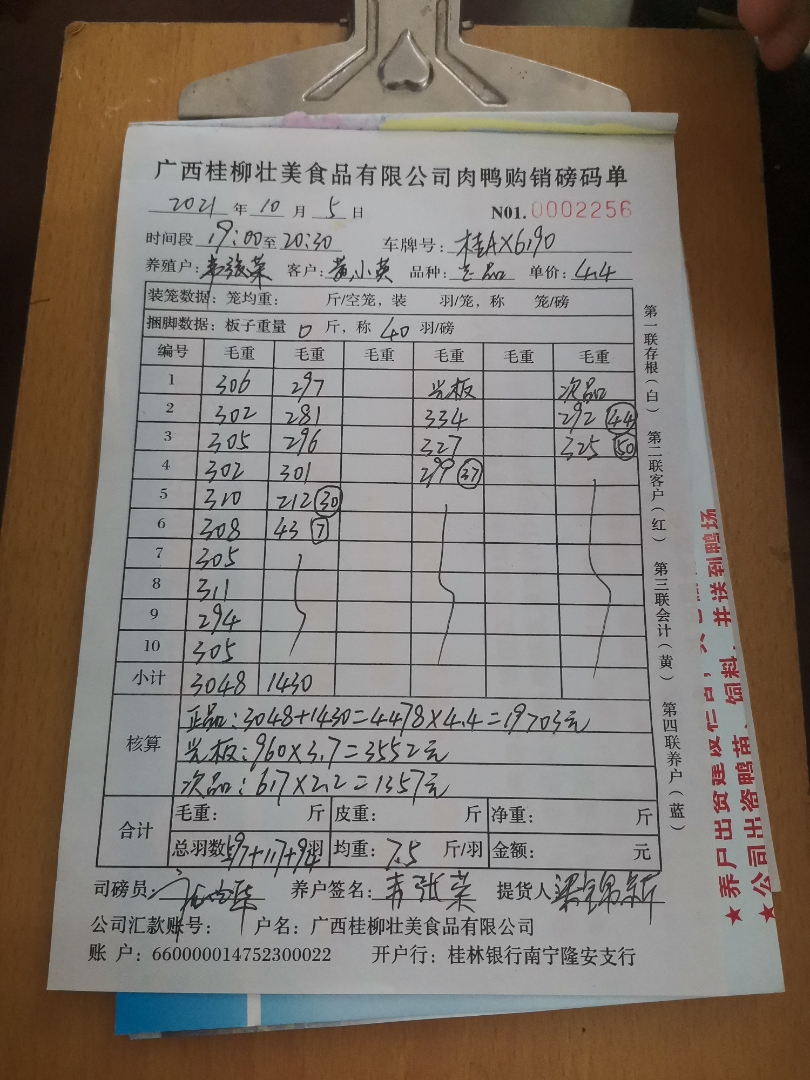 广西桂柳壮美食品有限公司肉鸭购销磅码单
2021 年 10 月 5 日 N01.0002256
时间段 19:00至20:30 车牌号: 桂AX6190
养殖户: 韦张荣 客户: 黄小英 品种: 正品 单价: 4.4
装笼数据: 笼均重: 斤/空笼, 装 羽/笼, 称 笼/磅
捆脚数据: 板子重量 0 斤, 称 40 羽/磅
编号 毛重 毛重 毛重 毛重 毛重 毛重
1 306 297 光板 次品
2 302 281 334 292 44
3 305 296 327 325 50
4 302 301 299 37
5 310 212 30
6 308 43 7
7 305
8 311
9 294
10 305
小计 3048 1430
核算 正品:3048+1430=4478×4.4=19703元
光板:960×3.7=3552元
次品:617×2.2=1357元
合计 毛重: 斤 皮重: 斤 净重: 斤
总羽数 597+117+94 羽 均重: 7.5 斤/羽 金额: 元
司磅员 养户签名: 韦张荣 提货人
公司汇款账号: 户名: 广西桂柳壮美食品有限公司
账 户: 660000014752300022 开户行: 桂林银行南宁隆安支行
第一联存根(白) 第二联客户(红) 第三联会计(黄) 第四联养户(蓝)
★养户出货建议
★公司出咨鸭苗、饲料,
并送到鸭场